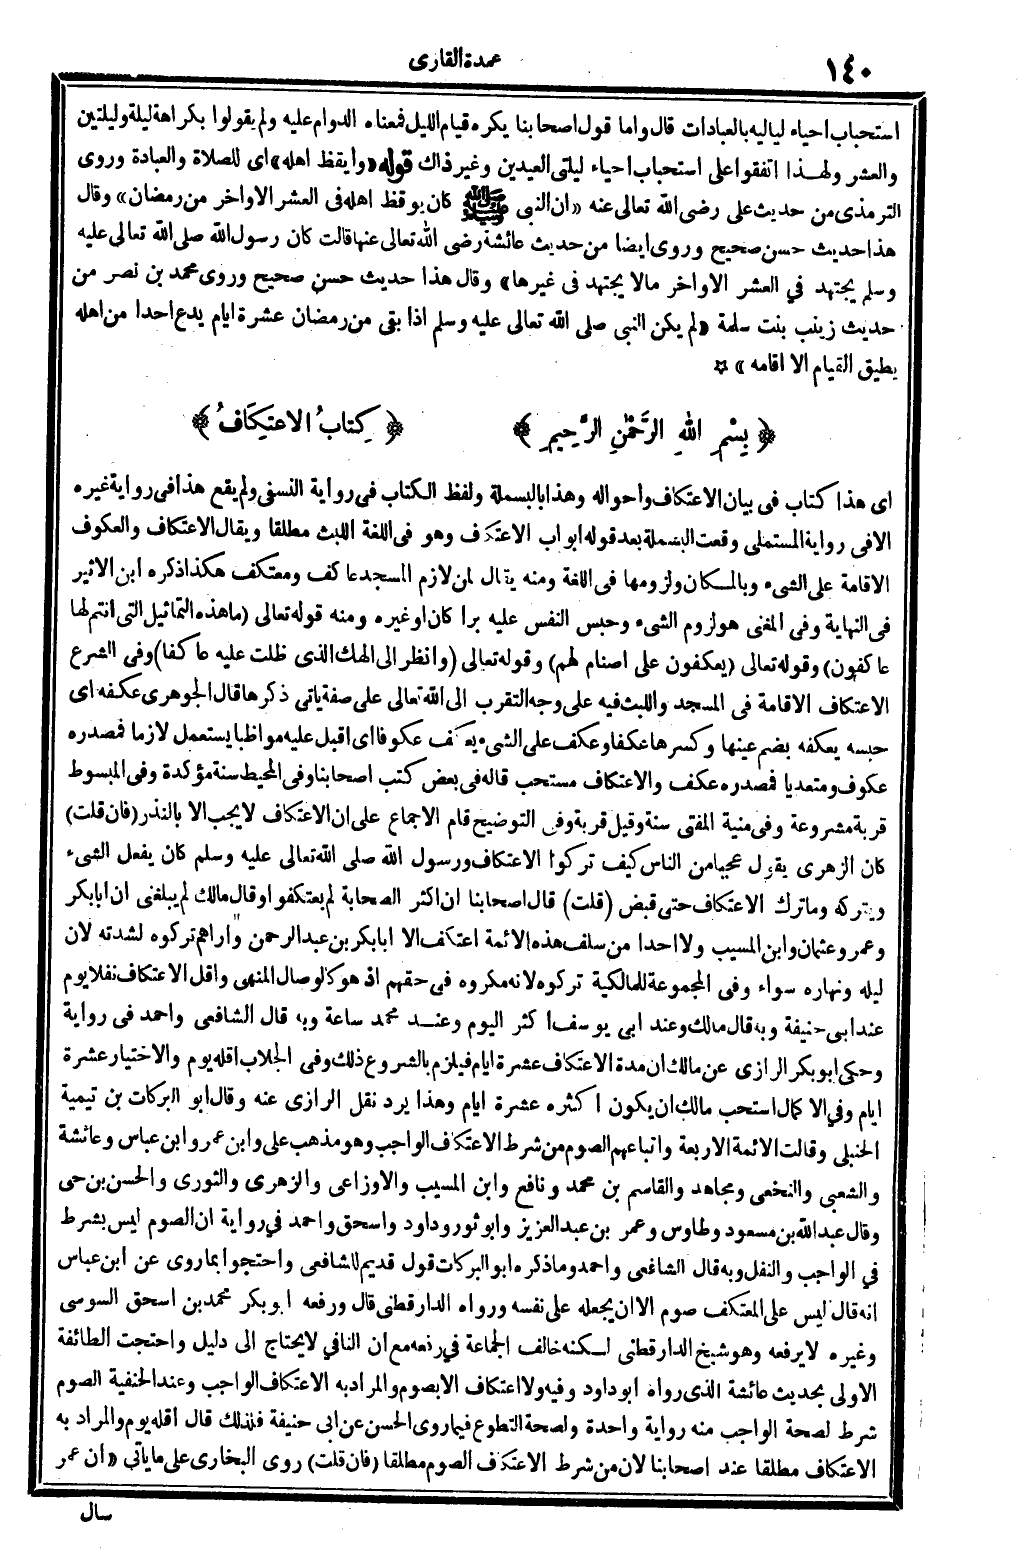 ١٤٠
عمدة القارى
استحباب احياء لياليه بالعبادات قال واما قول اصحابنا يكره قيام الليل فمعناه الدوام عليه ولم يقولوا بكراهة ليلة وليلتين
والعشر ولهـذا اتفقوا على استحباب احياء ليلتى العيدين وغير ذاك قوله «وايقظ اهله» اى للصلاة والعبادة وروى
الترمذى من حديث على رضى الله تعالى عنه «ان النبى ﷺ كان يوقظ اهله فى العشر الاواخر من رمضان» وقال
هذا حديث حسن صحيح وروى ايضا من حديث عائشة رضى الله تعالى عنها قالت كان رسول الله صلى الله تعالى عليه
وسلم يجتهد في العشر الاواخر مالا يجتهد فى غيرها» وقال هذا حديث حسن صحيح وروى محمد بن نصر من
حديث زينب بنت سلمة «لم يكن النبى صلى الله تعالى عليه وسلم اذا بقى من رمضان عشرة ايام يدع احدا من اهله
يطيق القيام الا اقامه»
﴿ بِسْمِ اللهِ الرَّحْمٰنِ الرَّحِيمِ ﴾ ﴿ كِتَابُ الاعْتِكَافُ ﴾
اى هذا كتاب فى بيان الاعتكاف واحواله وهذا بالبسملة ولفظ الكتاب فى رواية النسفى ولم يقع هذا فى رواية غيره
الافى رواية المستملى وقعت البسملة بعد قوله ابواب الاعتكاف وهو فى اللغة اللبث مطلقا ويقال الاعتكاف والعكوف
الاقامة على الشىء وبالمـكان ولزومها فى اللغة ومنه يقال لمن لازم المسجد عاكف ومعتكف هكذا ذكره ابن الاثير
فى النهاية وفى المغنى هو لزوم الشىء وحبس النفس عليه برا كان او غيره ومنه قوله تعالى (ما هذه التماثيل التى انتم لها
عاكفون) وقوله تعالى (يعكفون على اصنام لهم) وقوله تعالى (وانظر الى الهك الذى ظلت عليه عاكفا) وفى الشرع
الاعتكاف الاقامة فى المسجد واللبث فيه على وجه التقرب الى الله تعالى على صفة ياتى ذكرها قال الجوهرى عكفه اى
حبسه يعكفه بضم عينها وكسرها عكفا وعكف على الشىء يعكف عكوفا اى اقبل عليه مواظبا يستعمل لازما فمصدره
عكوف ومتعديا فمصدره عكف والاعتكاف مستحب قاله فى بعض كتب اصحابنا وفى المحيط سنة مؤكدة وفى المبسوط
قربة مشروعة وفى منية المفتى سنة وقيل قربة وفى التوضيح قام الاجماع على ان الاعتكاف لا يجب الا بالنذر (فان قلت)
كان الزهرى يقول عجبا من الناس كيف تركوا الاعتكاف ورسول الله صلى الله تعالى عليه وسلم كان يفعل الشىء
ويتركه وماترك الاعتكاف حتى قبض (قلت) قال اصحابنا ان اكثر الصحابة لم يعتكفوا وقال مالك لم يبلغنى ان ابابكر
وعمر وعثمان وابن المسيب ولا احدا من سلف هذه الائمة اعتكف الا ابابكر بن عبد الرحمن واراهم تركوه لشدته لان
ليله ونهاره سواء وفى المجموعة للمالكية تركوه لانه مكروه فى حقهم اذ هو كالوصال المنهى واقل الاعتكاف نفلا يوم
عند ابى حنيفة وبه قال مالك وعند ابى يوسف اكثر اليوم وعنـد محمد ساعة وبه قال الشافعى واحمد فى رواية
وحكى ابو بكر الرازى عن مالك ان مدة الاعتكاف عشرة ايام فيلزم بالشروع ذلك وفى الجلاب اقله يوم والاختيار عشرة
ايام وفي الاكمال استحب مالك ان يكون اكثره عشرة ايام وهذا يرد نقل الرازى عنه وقال ابو البركات بن تيمية
الحنبلى وقالت الائمة الاربعة واتباعهم الصوم من شرط الاعتكاف الواجب وهو مذهب على وابن عمر وابن عباس وعائشة
والشعبى والنخعى ومجاهد والقاسم بن محمد ونافع وابن المسيب والاوزاعى والزهرى والثورى والحسن بن حى
وقال عبدالله بن مسعود وطاوس وعمر بن عبدالعزيز وابو ثور وداود واسحق واحمد فى رواية ان الصوم ليس بشرط
في الواجب والنفل وبه قال الشافعى واحمد وما ذكره ابو البركات قول قديم للشافعى واحتجوا بماروى عن ابن عباس
انه قال ليس على المعتكف صوم الا ان يجعله على نفسه ورواه الدارقطنى قال ورفعه ابو بكر محمد بن اسحق السوسى
وغيره لا يرفعه وهو شيخ الدارقطنى لـكنه خالف الجماعة في رفعه مع ان النافي لا يحتاج الى دليل واحتجت الطائفة
الاولى بحديث عائشة الذى رواه ابو داود وفيه ولا اعتكاف الا بصوم والمراد به الاعتكاف الواجب وعند الحنفية الصوم
شرط لصحة الواجب منه رواية واحدة ولصحة التطوع فيما روى الحسن عن ابى حنيفة فلذلك قال اقله يوم والمراد به
الاعتكاف مطلقا عند اصحابنا لان من شرط الاعتكاف الصوم مطلقا (فان قلت) روى البخارى على ما ياتي «ان عمر
سال